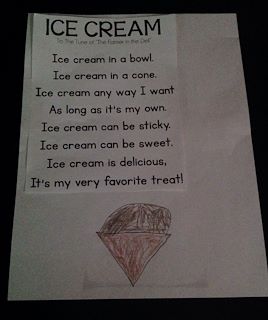 ICE CREAM
To The Tune of "The Farmer in the Dell"
Ice cream in a bowl.
Ice cream in a cone.
Ice cream any way I want
As long as it's my own.
Ice cream can be sticky.
Ice cream can be sweet.
Ice cream is delicious,
It's my very favorite treat!